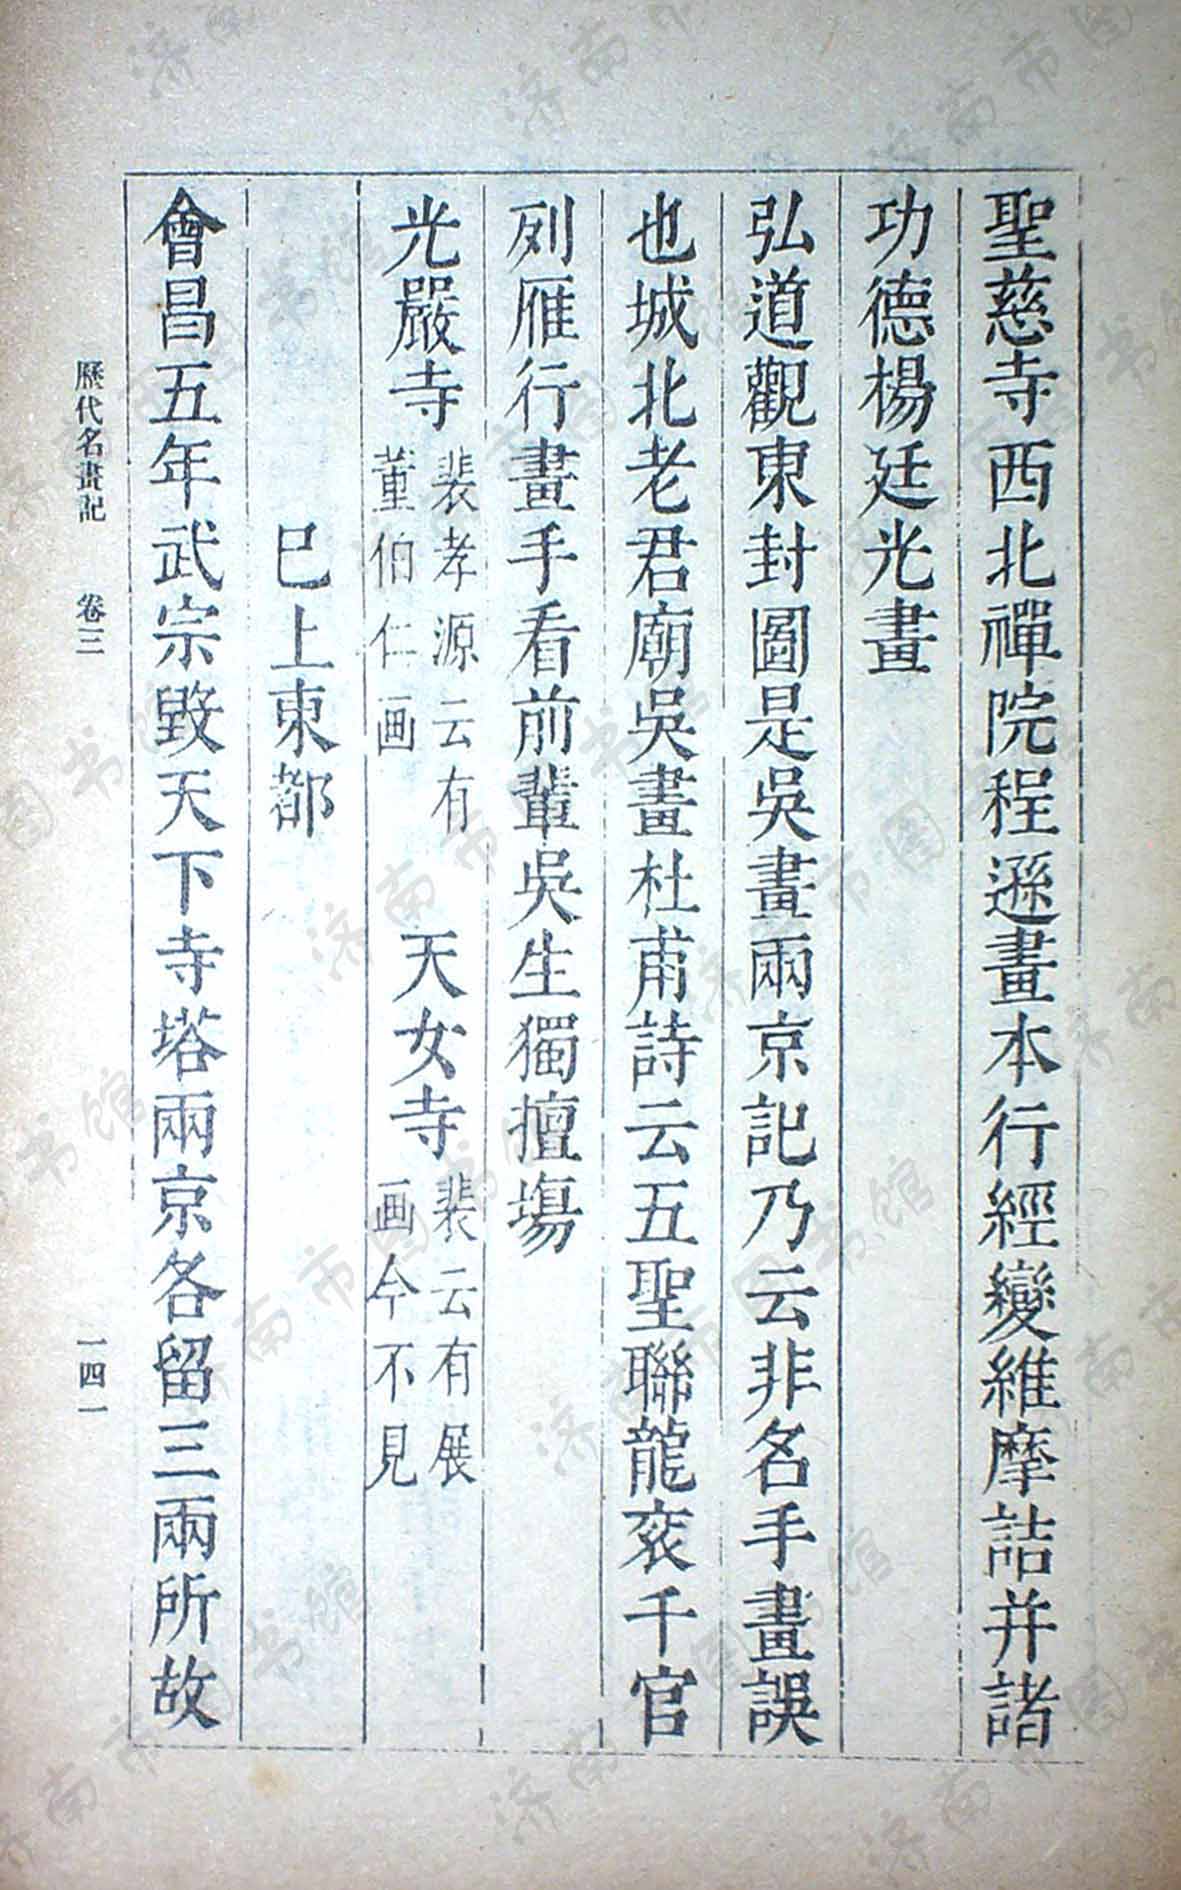 聖慈寺西北禪院程遜畫本行經變維摩詰并諸
功德楊廷光畫
弘道觀東封圖是吳畫兩京記乃云非名手畫誤
也城北老君廟吳畫杜甫詩云五聖聯龍衮千官
列雁行畫手看前輩吳生獨擅塲
光嚴寺
裴孝源云有
董伯仁画
天女寺
裴云有展
画今不見
已上東都
會昌五年武宗毀天下寺塔兩京各留三兩所故
歷代名畫記 卷三 一四一
济南市图书馆